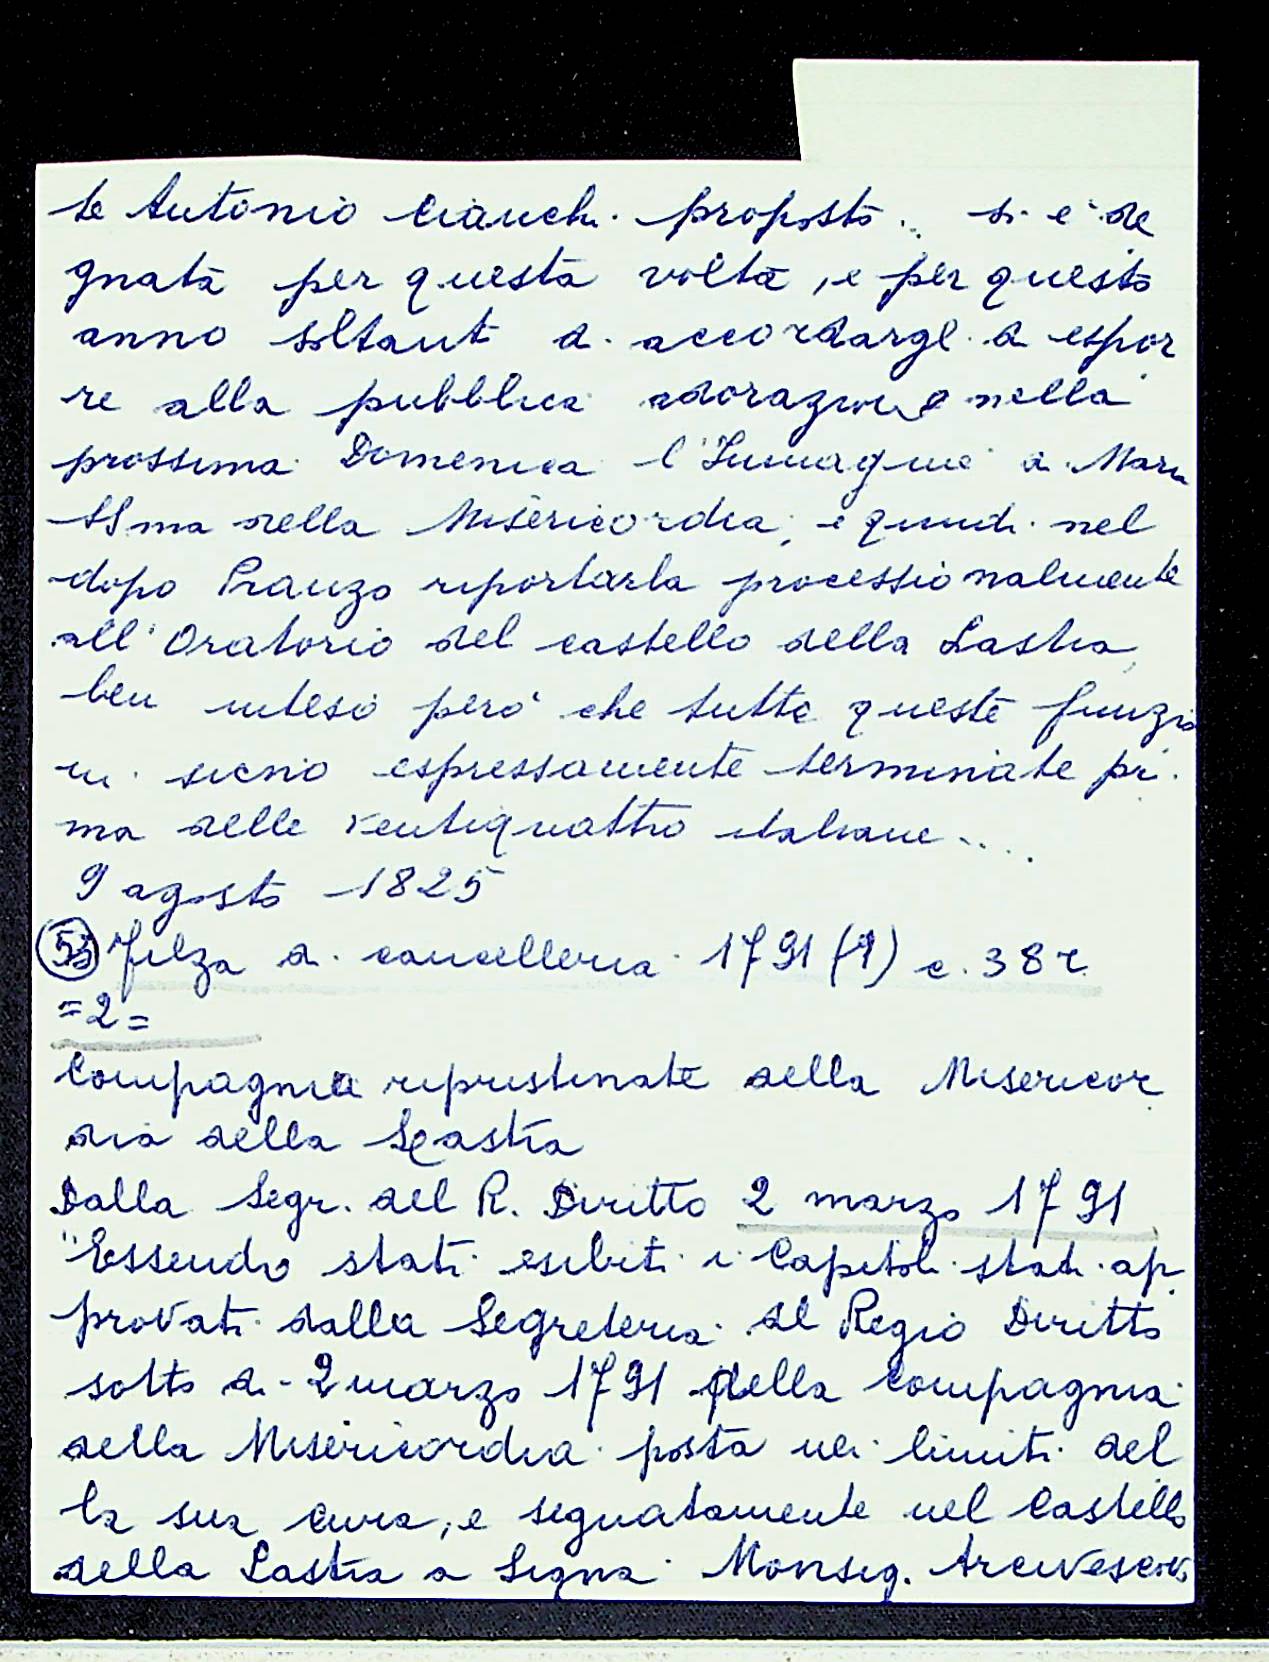 te Antonio Cianchi proposto.. si è de
gnata per questa volta, e per questo
anno soltanto di accordargli di espor
re alla pubblica adorazione nella
prossima Domenica l'Immagine di Maria
SSma della Misericordia, e quindi nel
dopo Pranzo riportarla processionalmente
all'Oratorio del castello della Lastra,
ben inteso però che tutte queste funzio
ni sieno espressamente terminate pri
ma delle ventiquattro italiane....
9 agosto 1825
Filza di cancelleria 1791 (1) c. 38r
=2=
Compagnia ripristinate della Misericor
dia della Lastra
Dalla Segr. del R. Diritto 2 marzo 1791
"Essendo stati esibiti i Capitoli stati ap
provati dalla Segreteria del Regio Diritto
sotto di 2 marzo 1791 della Compagnia
della Misericordia posta nei limiti del
la sua cura, e segnatamente nel Castello
della Lastra a Signa Monsig. Arcivescovo